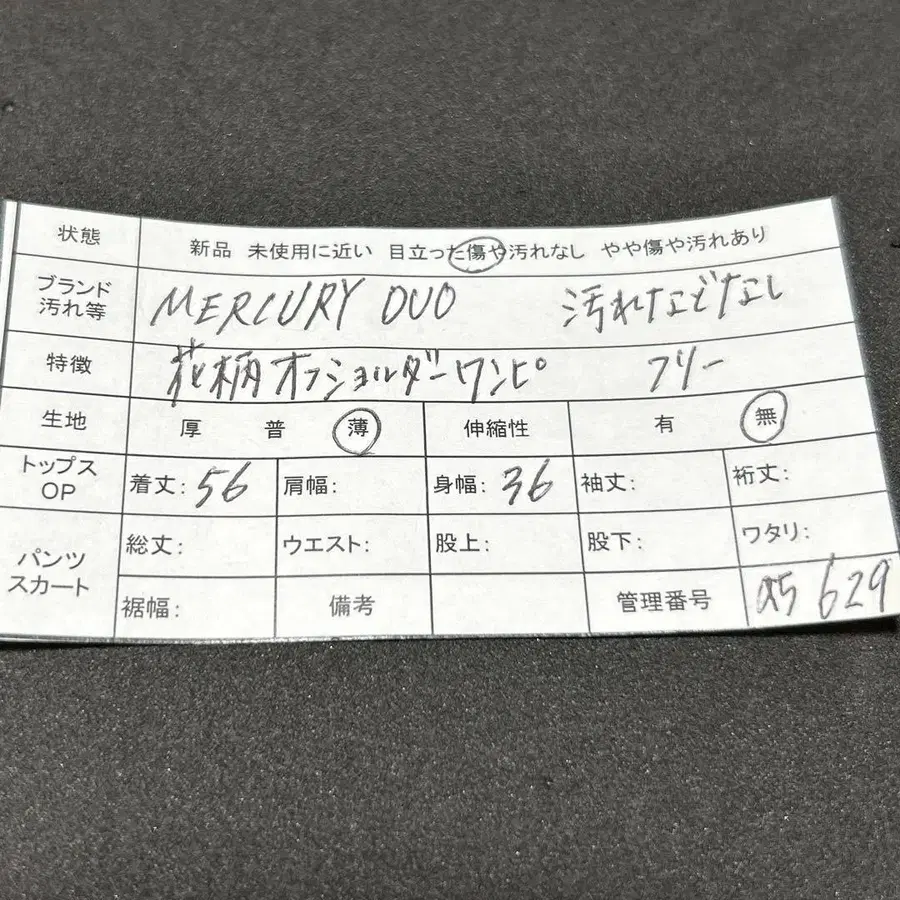 状態 新品 未使用に近い 目立った傷や汚れなし やや傷や汚れあり
ブランド 汚れ等 MERCURY DUO 汚れなどなし
特徴 花柄オフショルダーワンピ フリー
生地 厚 普 薄 伸縮性 有 無
トップス OP 着丈: 56 肩幅: 身幅: 36 袖丈: 裄丈:
パンツ スカート 総丈: ウエスト: 股上: 股下: ワタリ:
裾幅: 備考 管理番号 a5 629